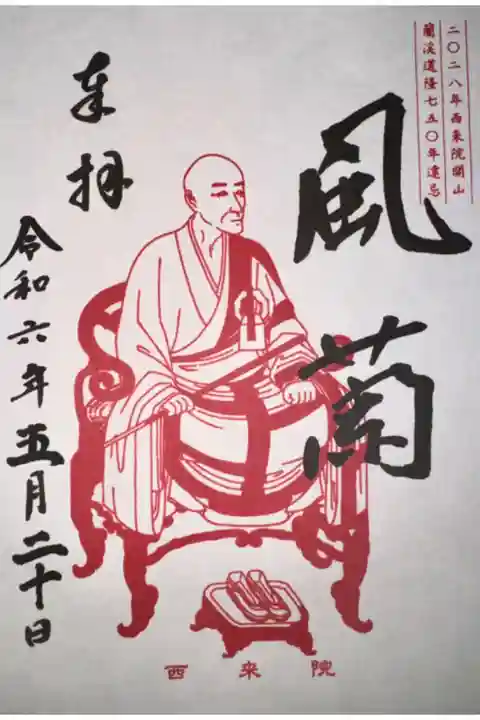 二〇二八年西来院開山
蘭溪道隆七五〇年遠忌
風蘭
奉拝
令和六年五月二十日
西来院